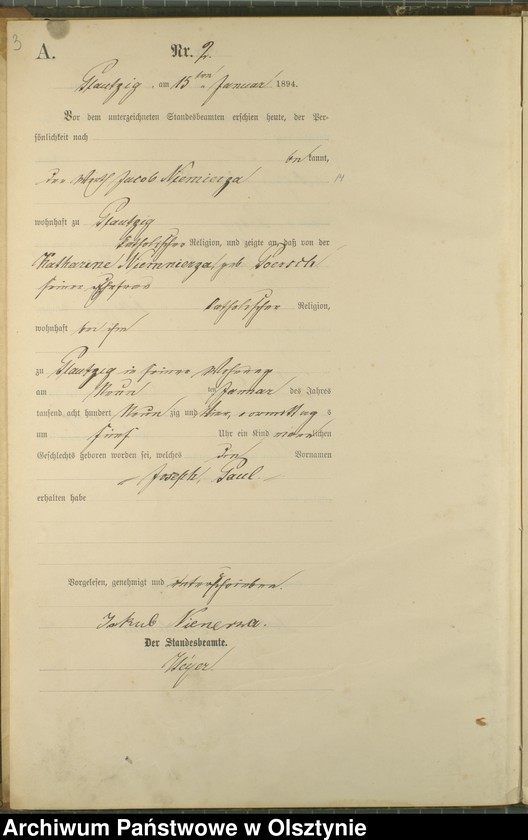 3
A.
Nr. 2.
Plautzig, am 15ten Januar 1894.
Vor dem unterzeichneten Standesbeamten erschien heute, der Per-
sönlichkeit nach
bekannt,
der Wirth Jacob Niemierza
wohnhaft zu Plautzig
katholischer Religion, und zeigte an, daß von der
Katharine Niemierza, geb.
seiner Ehefrau
katholischer Religion,
wohnhaft bei ihm
zu Plautzig in seiner Wohnung
am Neun ten Januar des Jahres
tausend acht hundert Neun zig und Vier, vormittags
um fünf Uhr ein Kind männlichen
Geschlechts geboren worden sei, welches den Vornamen
Joseph Paul
erhalten habe
Vorgelesen, genehmigt und unterschrieben.
Jakub
Der Standesbeamte.
Weyer
Archiwum Państwowe w Olsztynie